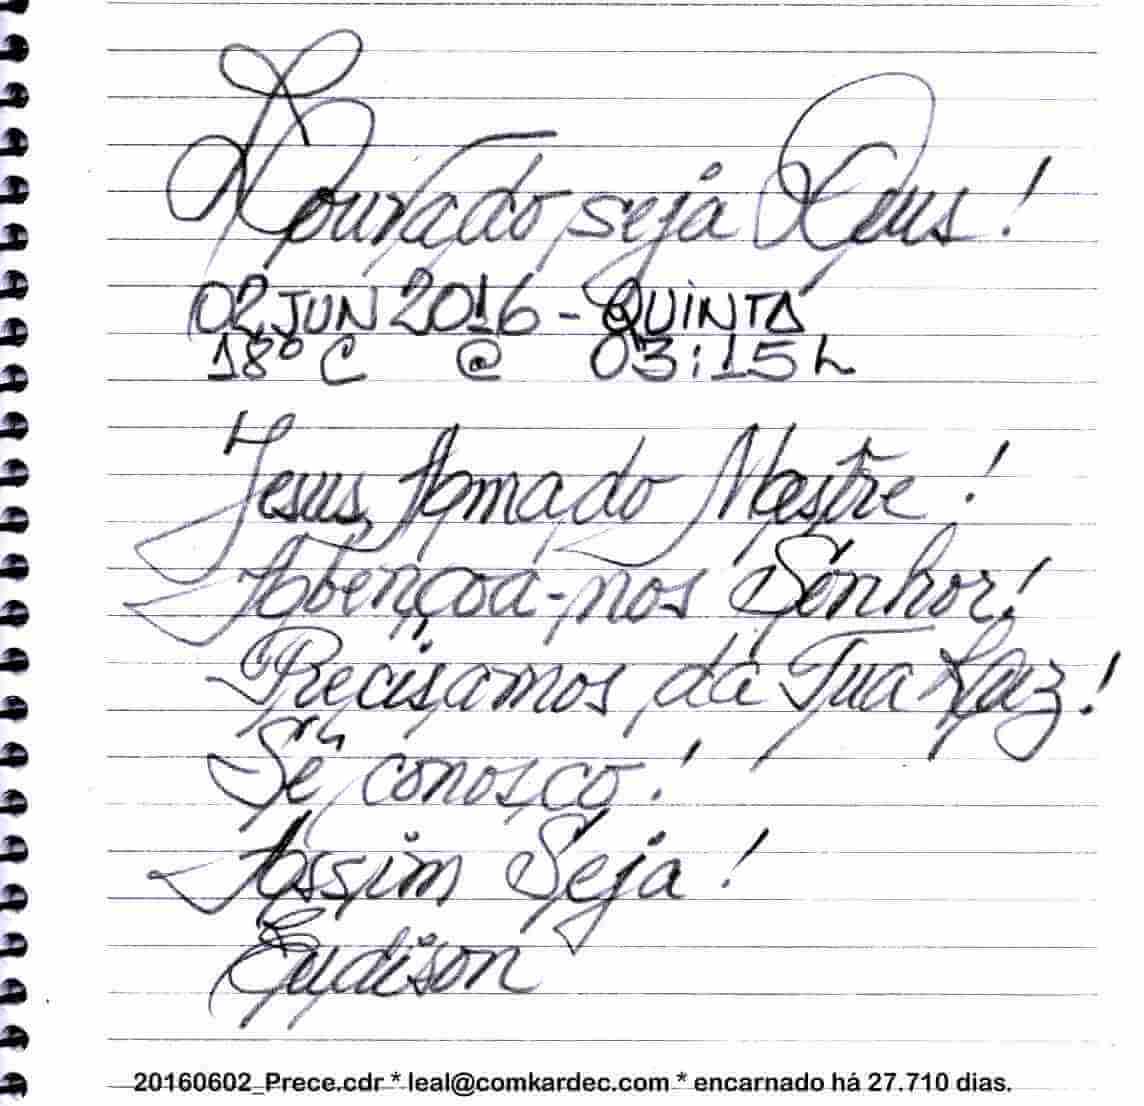 Louvado seja Deus!
02 JUN 2016 - QUINTA
18º C @ 03:15h
Jesus, Amado Mestre!
Abençoa-nos Senhor!
Precisamos da Tua Paz!
Sê conosco!
Assim Seja!
Eudison
20160602_Prece.cdr * leal@comkardec.com * encarnado há 27.710 dias.